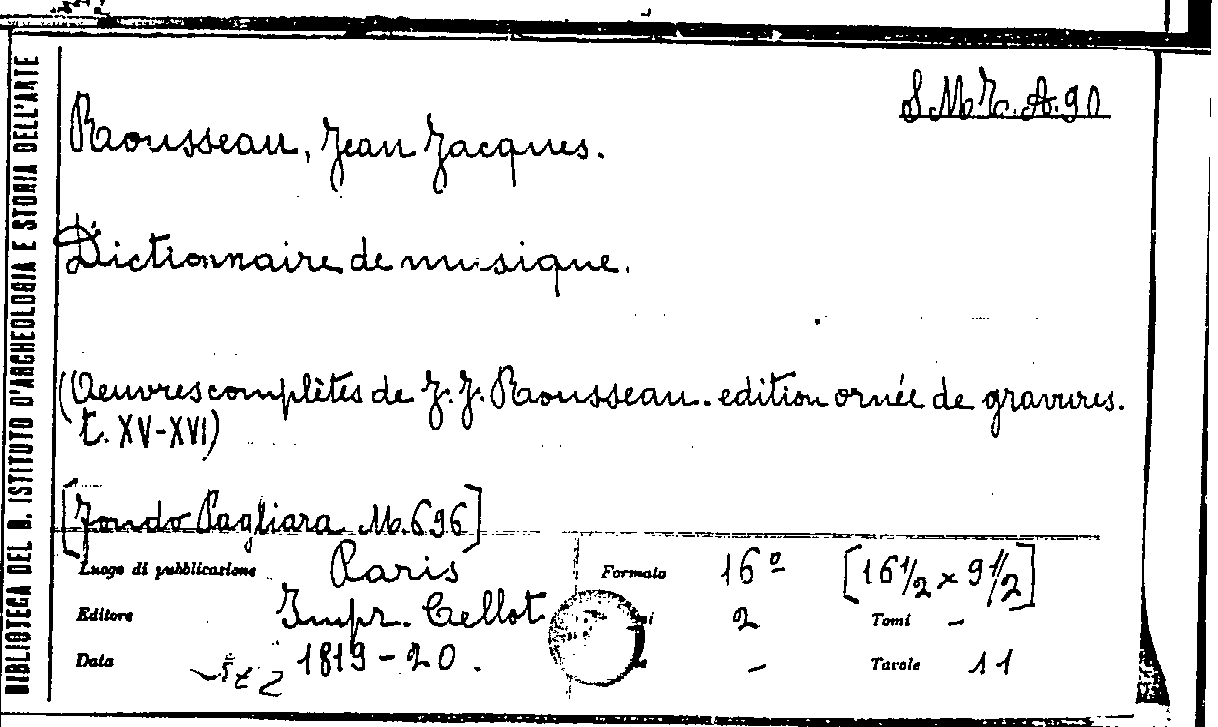 BIBLIOTECA DEL R. ISTITUTO D'ARCHEOLOGIA E STORIA DELL'ARTE
S.M.Z. A. 90
Rousseau, Jean Jacques.
Dictionnaire de musique.
(Oeuvres complètes de J. J. Rousseau. edition ornée de gravures.
t. XV-XVI)
[Fondo Pagliara M. 696]
Luogo di pubblicazione Paris Formato 16º [16 1/2 x 9 1/2]
Editore Impr. Cellot 2 Tomi –
Data 1819-20. – Tavole 11